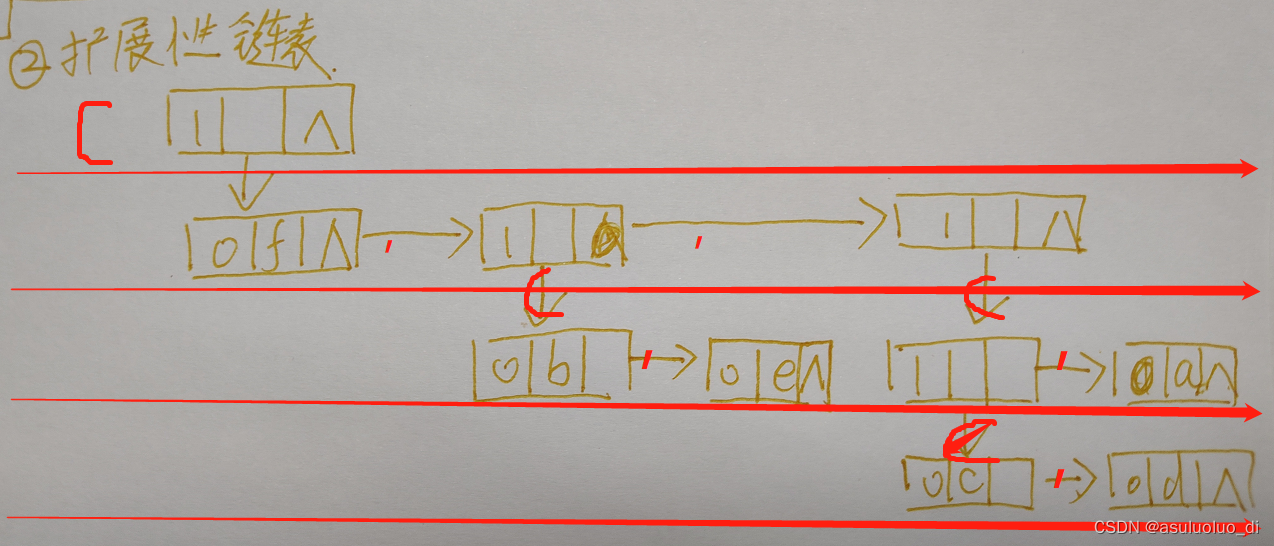 ②扩展性链表.
1 ∧
0 f ∧ , 1 , 1 ∧
0 b , 0 e ∧ 1 , 0 a ∧
0 c , 0 d ∧
CSDN @asuluoluo_di